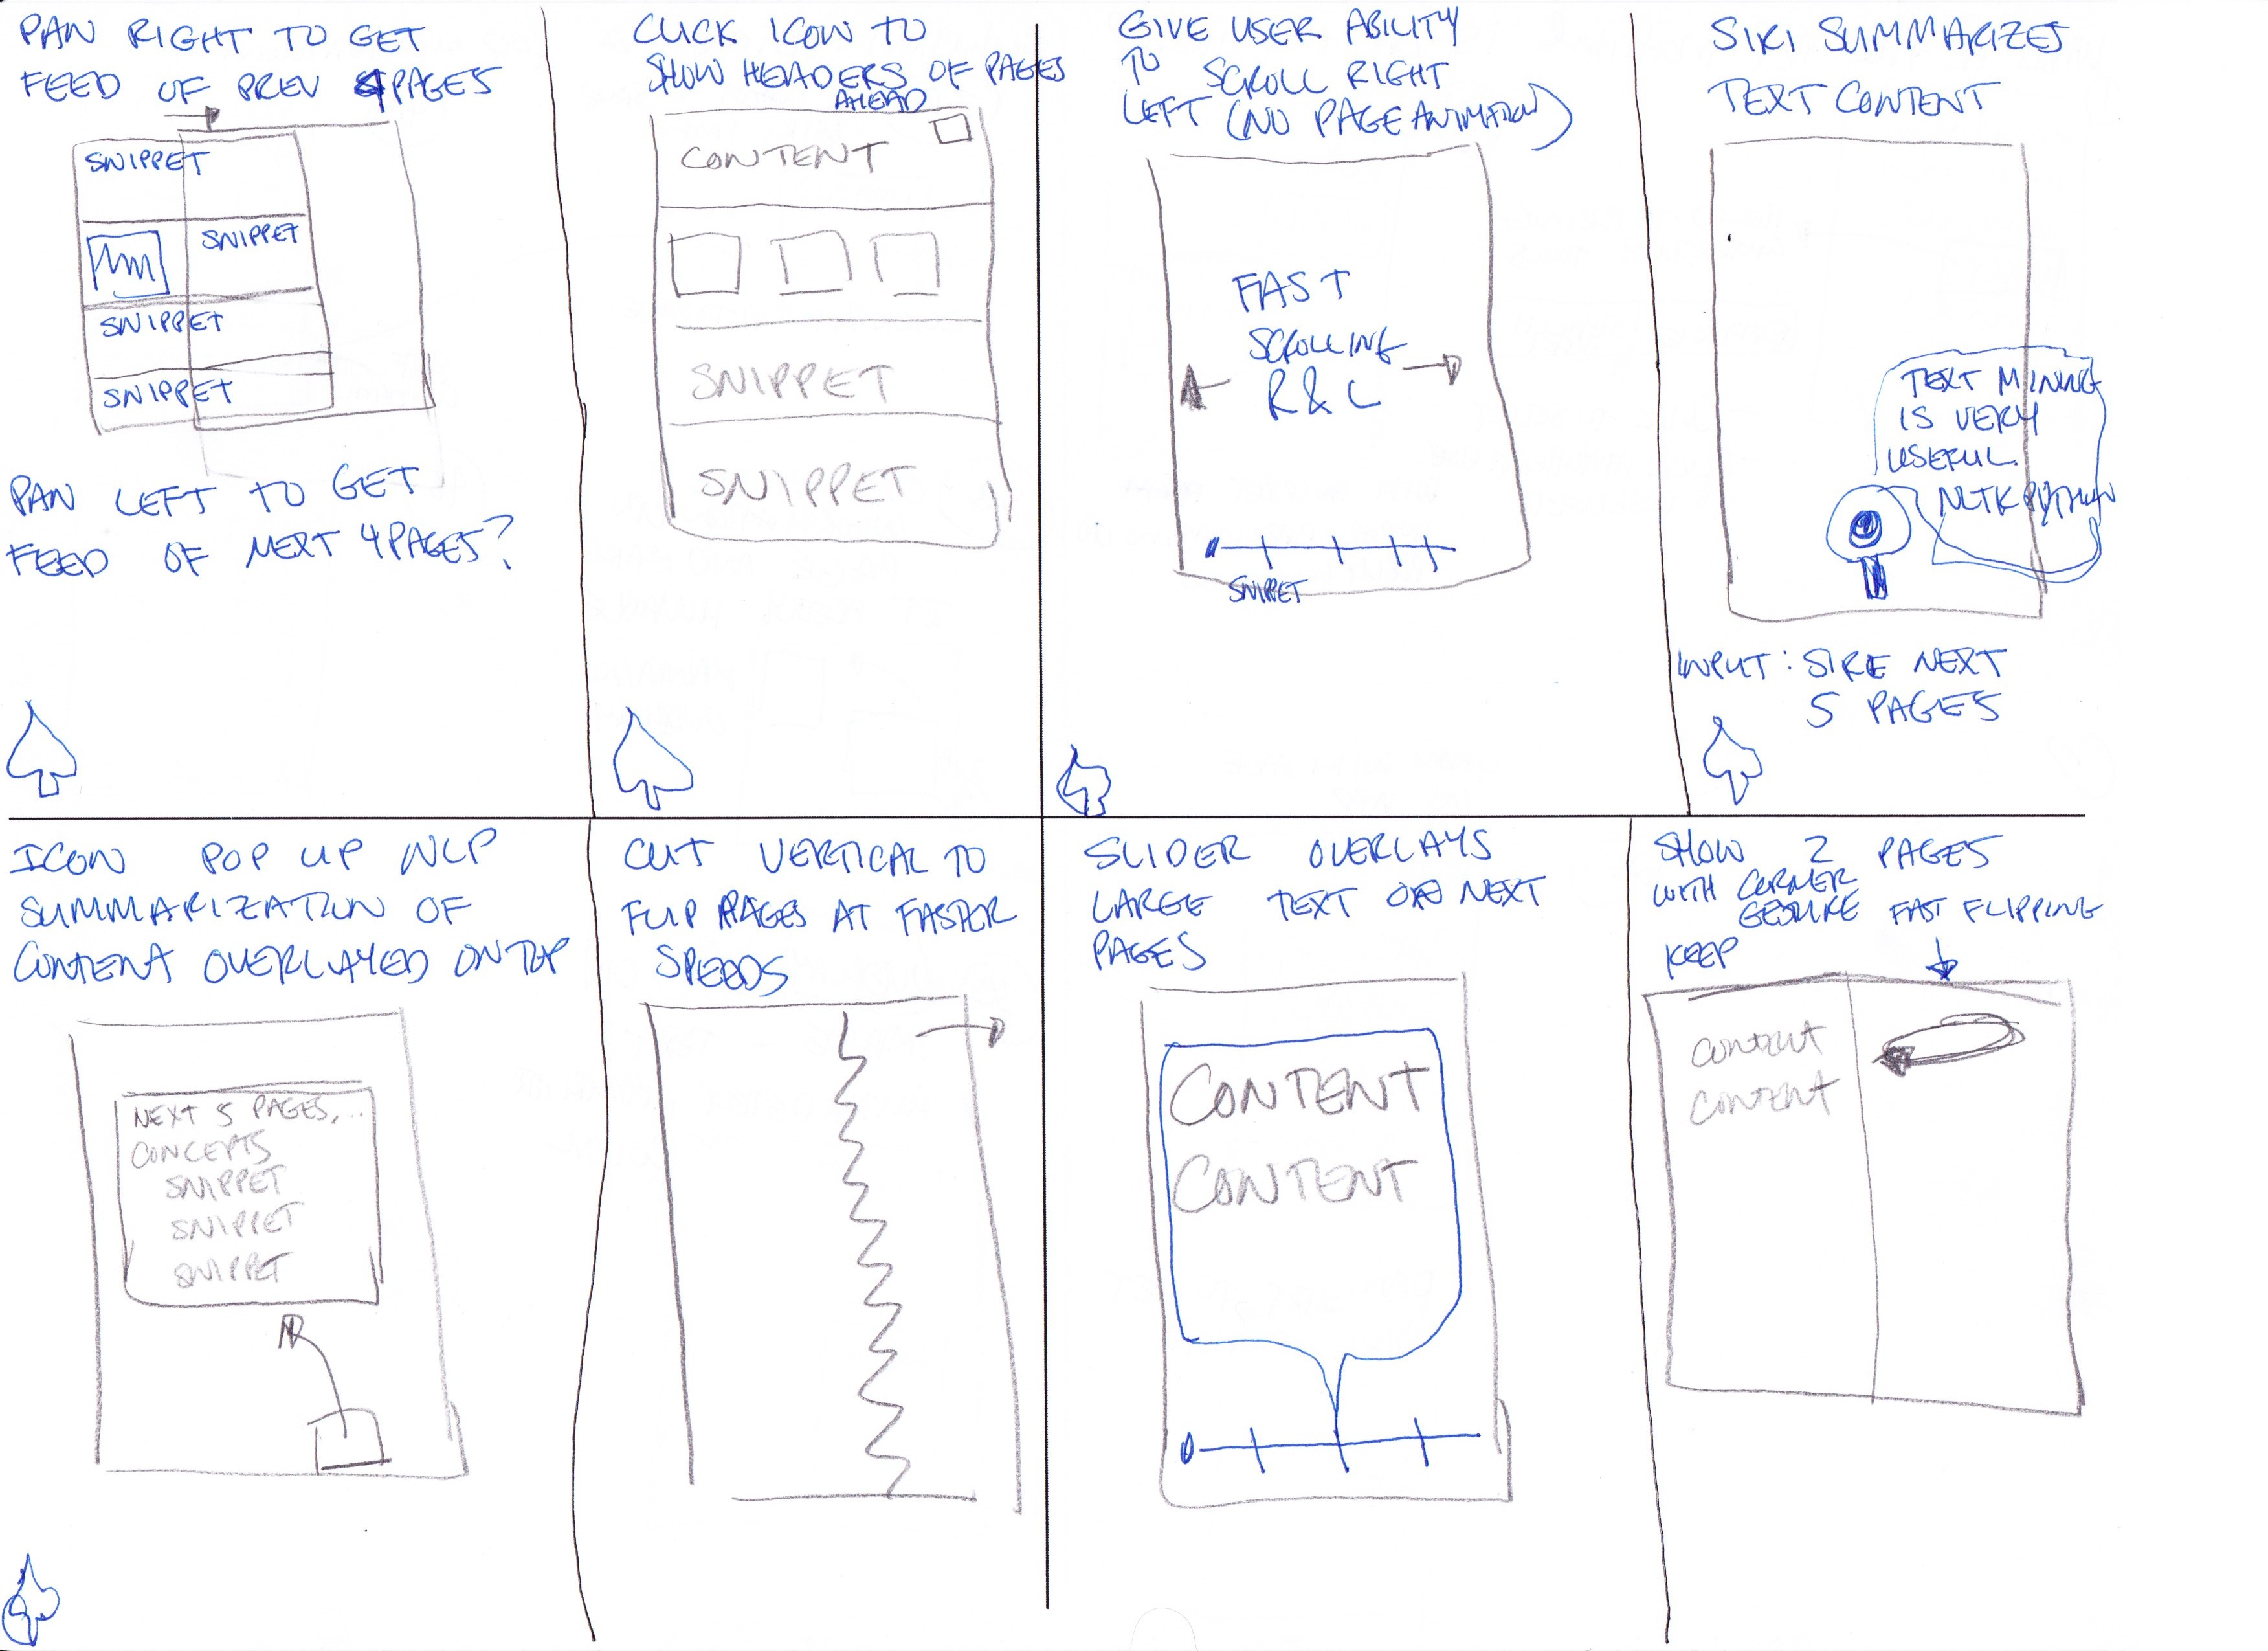 PAN RIGHT TO GET
FEED OF PREV 4 PAGES
SNIPPET
SNIPPET
SNIPPET
SNIPPET
PAN LEFT TO GET
FEED OF NEXT 4 PAGES?
CLICK ICON TO
SHOW HEADERS OF PAGES
AHEAD
CONTENT
SNIPPET
SNIPPET
GIVE USER ABILITY
TO SCROLL RIGHT
LEFT (NO PAGE ANIMATION)
FAST
SCROLLING
R & L
SNIPPET
SIRI SUMMARIZES
TEXT CONTENT
TEXT MINING
IS VERY
USEFUL.
NLTK PYTHON
INPUT: SIRE NEXT
5 PAGES
ICON POP UP NLP
SUMMARIZATION OF
CONTENT OVERLAYED ON TOP
NEXT 5 PAGES,...
CONCEPTS
SNIPPET
SNIPPET
SNIPPET
CUT VERTICAL TO
FLIP PAGES AT FASTER
SPEEDS
SLIDER OVERLAYS
LARGE TEXT OF NEXT
PAGES
CONTENT
CONTENT
SHOW 2 PAGES
WITH CORNER
GESTURE FAST FLIPPING
KEEP
CONTENT
CONTENT